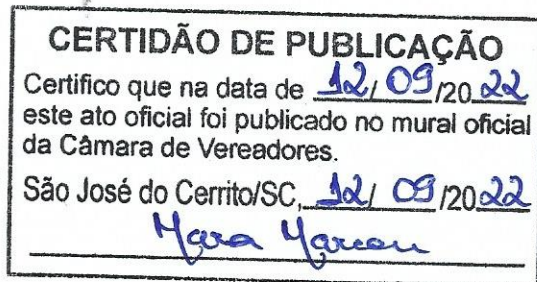 CERTIDÃO DE PUBLICAÇÃO
Certifico que na data de 12/09/2022
este ato oficial foi publicado no mural oficial
da Câmara de Vereadores.
São José do Cerrito/SC, 12/09/2022
Mara